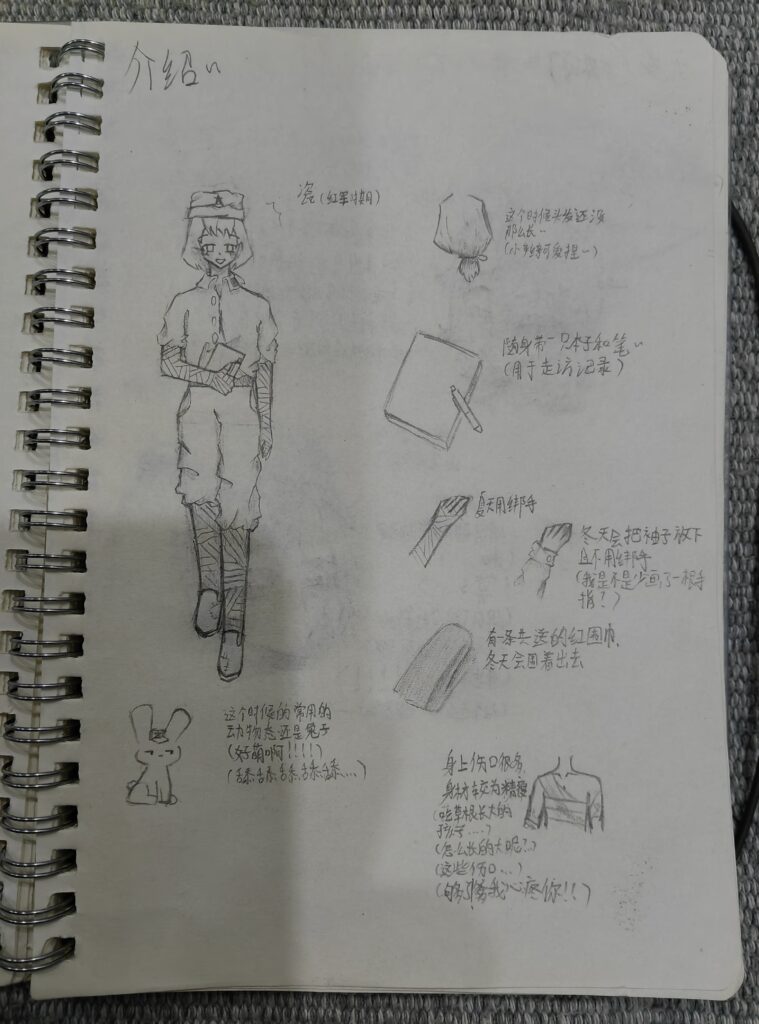 介绍~
瓷(红军时期)
这个时候头发还没
那么长~
(小小可爱捏~)
随身带一只本子和笔~
(用于走访记录)
夏天用绑手
冬天会把袖子放下
且不用绑手
(我是不是少画了一根手
指?)
有一条共送的红围巾,
冬天会围着出去
这个时候的常用的
动物态还是兔子
(好萌啊!!!!)
(舔舔舔舔舔....)
身上伤口很多,
身材较为精瘦
(吃草根长大的
孩子....)
(怎么长的大呢?)
(这些伤口...)
(够了!我心疼你!!)